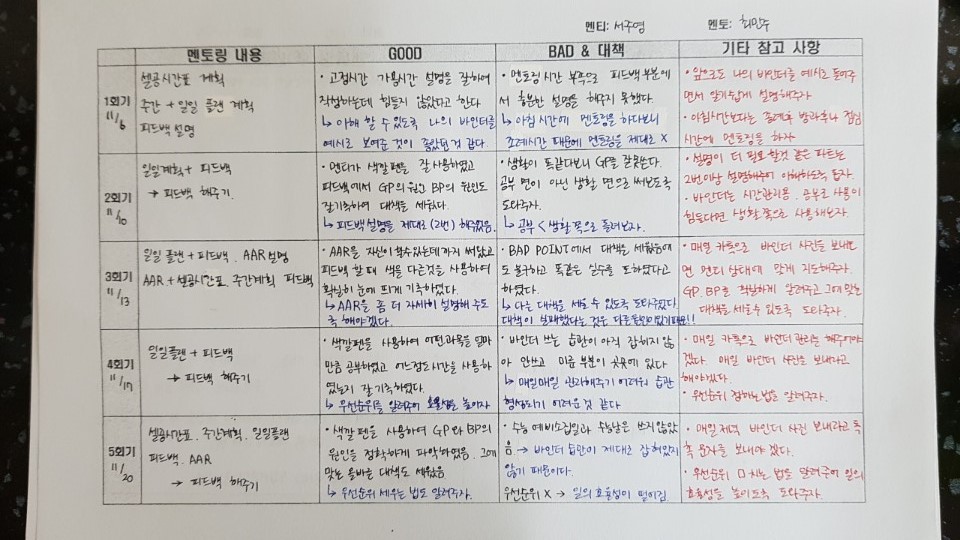 멘티: 서주영 멘토: 최민수
멘토링 내용 GOOD BAD & 대책 기타 참고 사항
1회기
11/6
셀공시간표 계획
주간 + 일일 플랜 계획
피드백 설명
· 고정시간 가용시간 설명을 잘하여
작성하는데 힘들지 않았다고 한다
↳ 이해 할 수 있도록 나의 바인더를
예시로 보여준 것이 좋았던것 같다.
· 멘토링 시간 부족으로 피드백 부분에
서 충분한 설명을 해주지 못했다.
↳ 아침 시간에 멘토링을 하다보니
조례시간 때문에 멘토링을 제대로 X
· 앞으로도 나의 바인더를 예시로 들어주
면서 알기쉽게 설명해주자
· 아침시간보다는 종례후 방과후나 점심
시간에 멘토링을 하자
2회기
11/10
일일계획 + 피드백
→ 피드백 해주기.
· 멘티가 색깔펜을 잘 사용하였고
피드백에서 GP의 원인 BP의 원인도
잘기록하여 대책을 세웠다.
↳ 피드백 설명을 제대로 (2번) 해주었음.
· 생활이 똑같다보니 GP를 잘못쓴다.
공부 면이 아닌 생활 면으로 써보도록
도와주자.
↳ 공부 < 생활 쪽으로 돌려보자.
· 설명이 더 필요 할것 같은 파트는
2번이상 설명해주어 이해하도록 돕자.
· 바인더는 시간관리용. 공부로 사용이
힘들다면 생활 쪽으로 사용해보자.
3회기
11/13
일일 플랜 + 피드백. AAR 설명
AAR + 셀공시간표. 주간계획 피드백
· AAR을 자신이 할수있는데까지 써왔고
피드백 할 때 색을 다른것을 사용하여
확실히 눈에 띄게 기록하였다.
↳ AAR을 좀 더 자세히 설명해 주도
록 해야겠다.
· BAD POINT에서 대책을 세웠음에
도 불구하고 똑같은 실수를 또하였다고
하였다.
↳ 다른 대책을 세울 수 있도록 도와주었다.
대책이 실패했다는 것은 다른 원인이 있기때문!!
· 매일 카톡으로 바인더 사진을 보내면
면 멘티 상태에 맞게 지도해주자.
GP. BP를 적절하게 알려주고 그에 맞는
대책을 세울수 있도록 도와주자.
4회기
11/17
일일플랜 + 피드백
→ 피드백 해주기
· 색깔펜을 사용하여 어떤과목을 얼마
만큼 공부하였고 어느정도 시간을 사용하
였는지 잘 기록하였다.
↳ 우선순위를 알려주어 효율성을 높이자
· 바인더 쓰는 습관이 아직 잡히지 않
아 안쓰고 미룸 부분이 곳곳에 있다
↳ 매일매일 관리해주기 어려워 습관
형성되기 어려운것 같다
· 매일 카톡으로 바인더 관리를 해주어야
겠다. 매일 바인더 사진을 보내라고
해야겠다.
· 우선순위 정하는법을 알려주자.
5회기
11/20
셀공시간표. 주간계획. 일일플랜
피드백. AAR
→ 피드백 해주기
· 색깔 펜을 사용하여 GP와 BP의
원인을 정확하게 파악하였음. 그에
맞는 올바른 대책도 세웠음
↳ 우선순위 세우는 법도 알려주자.
· 수능 예비소집일과 수능날은 쓰지않았
음. → 바인더 습관이 제대로 잡혀있지
않기 때문이다.
우선순위 X → 일의 효율성이 떨어짐
· 매일 저녁 바인더 사진 보내라고 독
촉 문자를 보내야 겠다.
· 우선순위 매기는 법도 알려주어 일의
효율성을 높이도록 도와주자